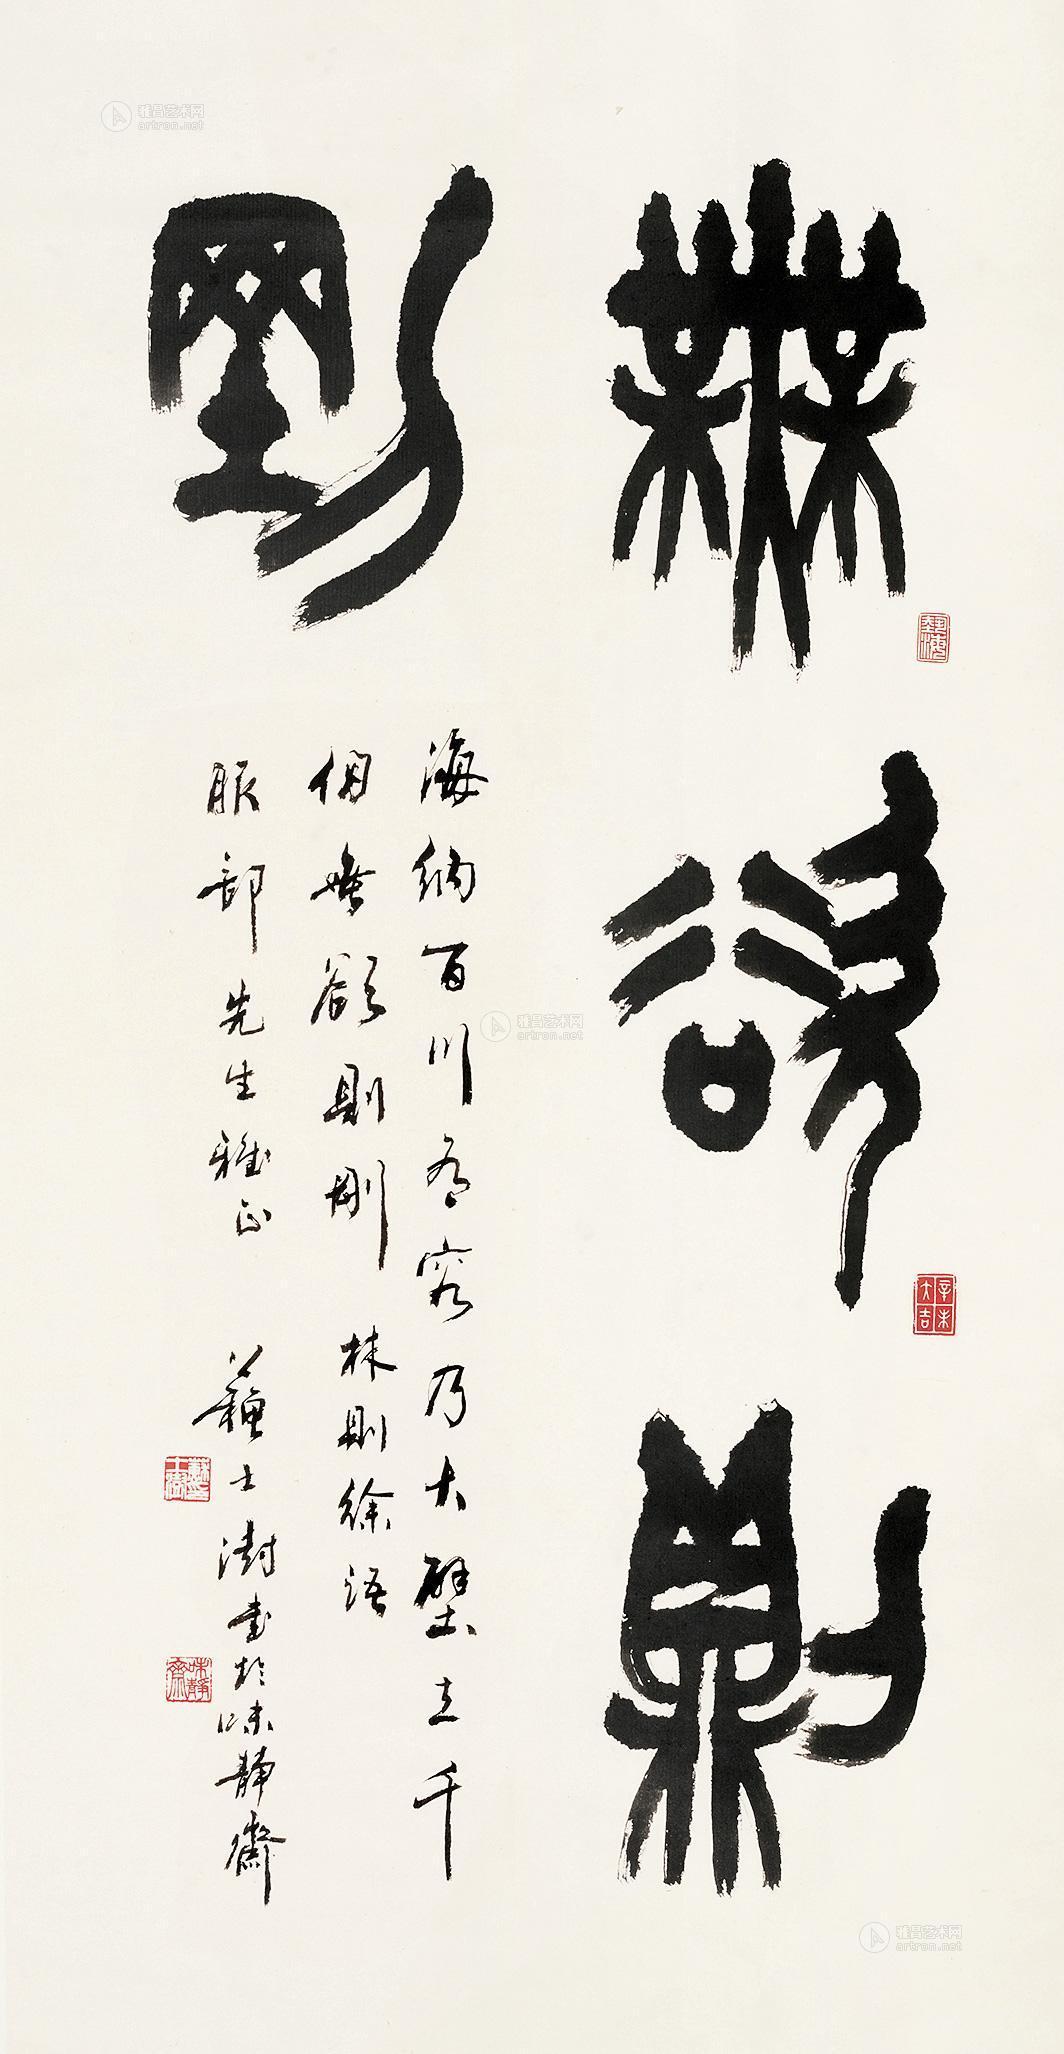 無欲則
剛
海納百川有容乃大壁立千
仞無欲則剛 林則徐語
服部先生雅正 蘇士澍書於味靜齋
辛未大吉
蘇士澍
味靜齋
雅昌艺术网
artron.net
雅昌艺术网
artron.net
雅昌艺术网
artron.net